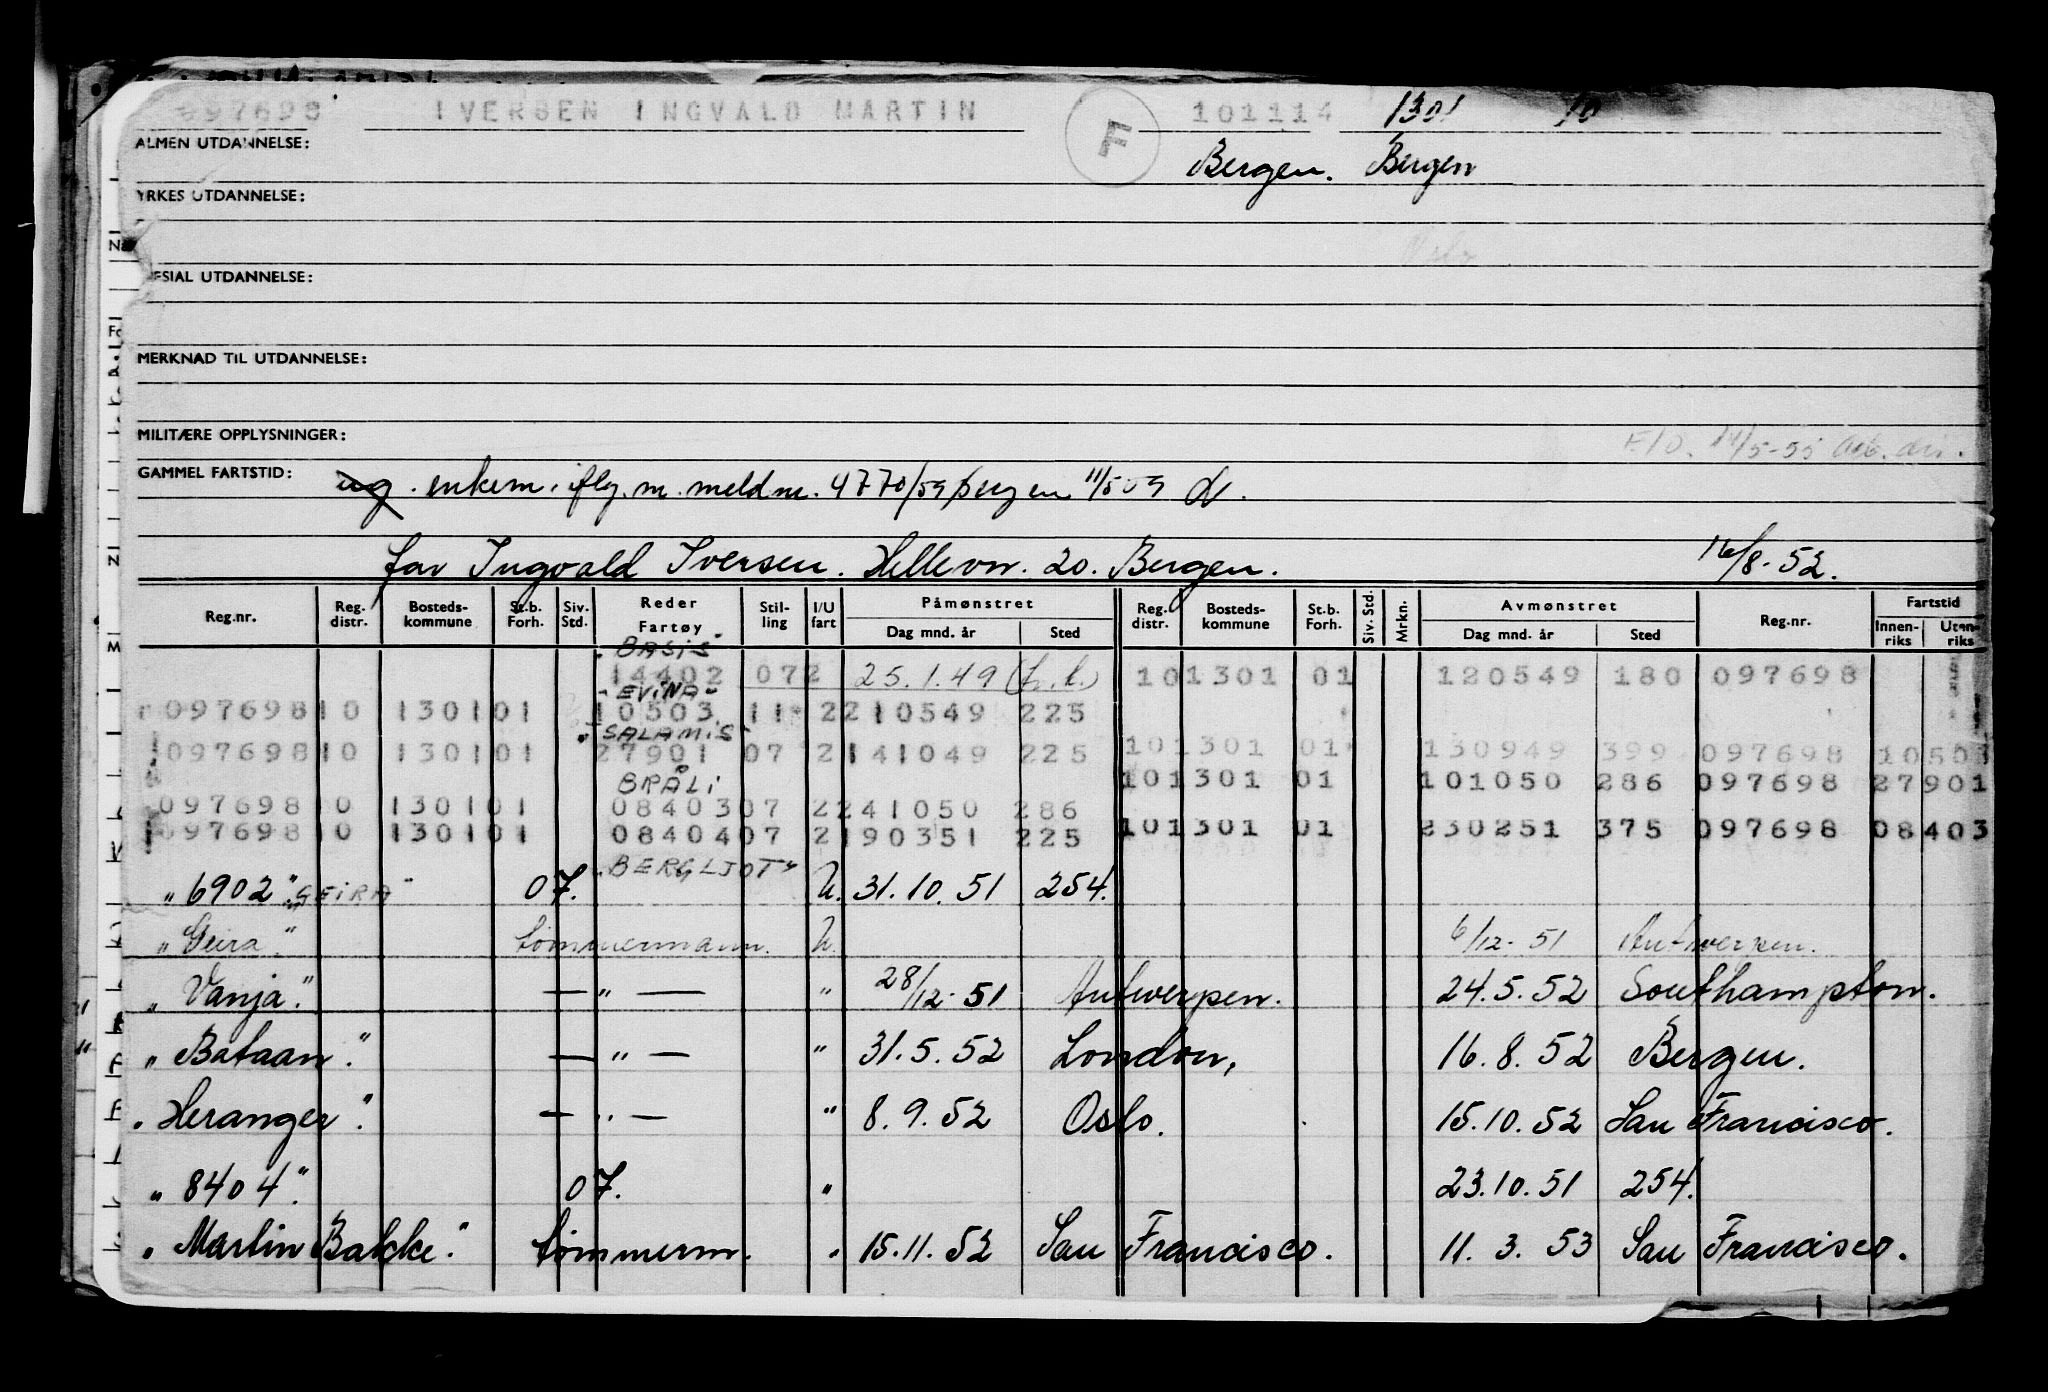 097698 IVERSEN INGVALD MARTIN F 101114 1301 10
ALMEN UTDANNELSE: Bergen. Bergen
YRKES UTDANNELSE:
Oslo
SPESIAL UTDANNELSE:
MERKNAD TIL UTDANNELSE:
MILITÆRE OPPLYSNINGER: 14/5-55
GAMMEL FARTSTID: ug. enkem. iflg. m. meld nr. 4770/59 Bergen 11/5 59
far Ingvald Iversen. Hellevn. 20. Bergen. 16/8-52.
Reg.nr. Reg. distr. Bosteds-kommune St.b. Forh. Siv. Std. Reder Fartøy Stil-ling I/U fart Påmønstret Dag mnd. år Sted Reg. distr. Bosteds-kommune St.b. Forh. Siv. Std. Mrkn. Avmønstret Dag mnd. år Sted Reg.nr. Fartstid Innen-riks Uten-riks
"BASIS"
14402 072 25.1.49 101301 01 120549 180 097698
"EVINA"
097698 10 1301 01 10503 11 2 210549 225
"SALAMIS"
097698 10 1301 01 27901 07 2 141049 225 101301 01 130949 399 097698 10503
BRÅLI 101301 01 101050 286 097698 27901
097698 10 1301 01 08403 07 2 241050 286
097698 10 1301 01 08404 07 2 190351 225 101301 01 230251 375 097698 08403
"BERGLJOT"
"6902" "GEIRA" 07. U. 31.10.51 254.
"Geira." tømmermann. U. 6/12-51 Antwerpen.
"Vanja." — " — " 28/12-51 Antwerpen. 24.5.52 Southampton.
"Bataan." — " — " 31.5.52 London, 16.8.52 Bergen.
"Heranger." — " — " 8.9.52 Oslo. 15.10.52 San Francisco.
"8404". 07. " 23.10.51 254.
"Martin Bakke." tømmerm. " 15.11.52 San Francisco. 11.3.53 San Francisco.